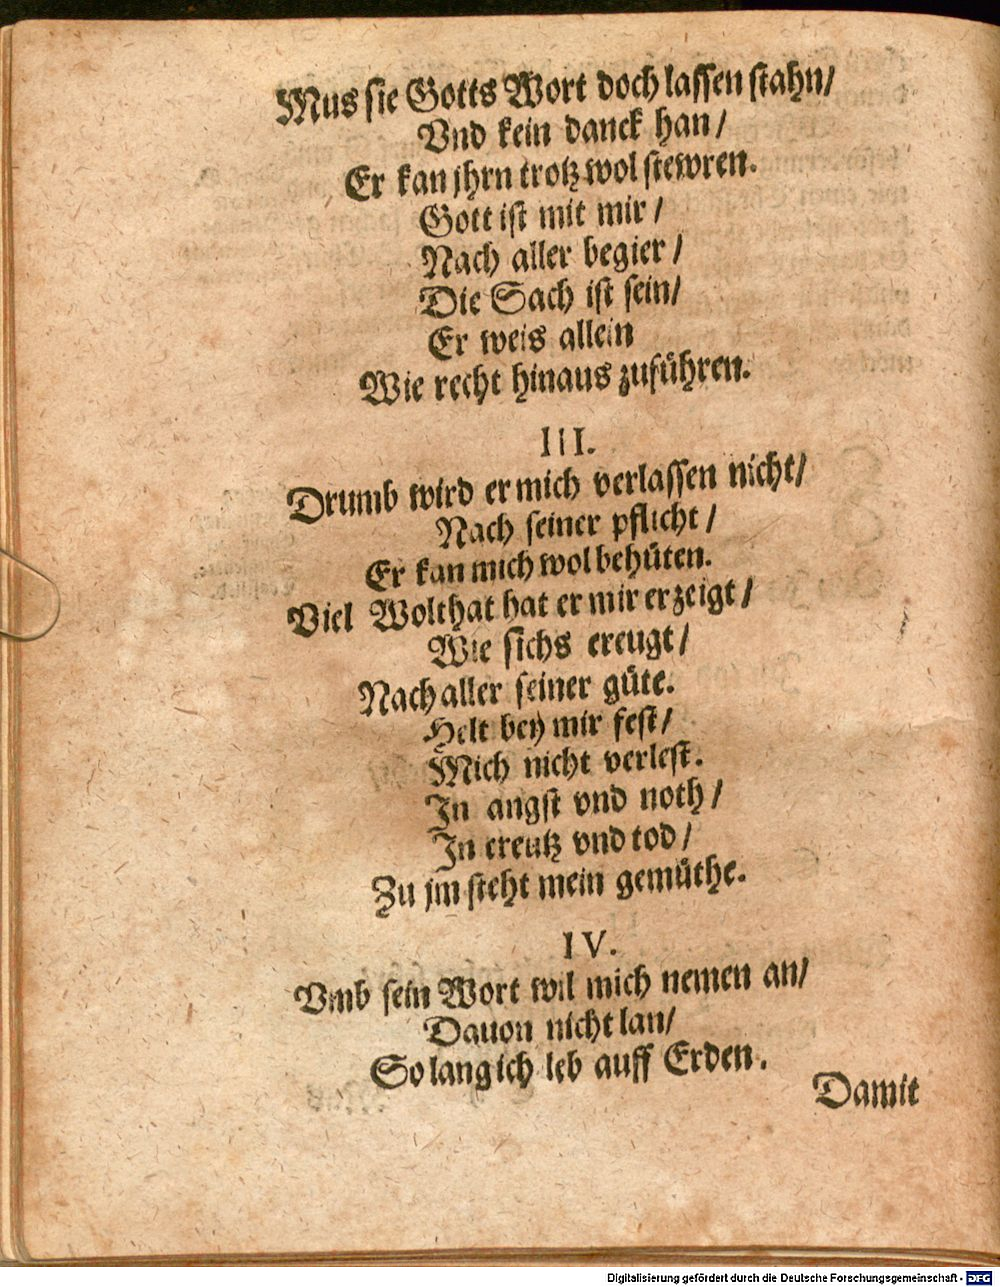 Mus sie Gotts Wort doch lassen stahn/
Vnd kein danck han/
Er kan jhrn trotz wol stewren.
Gott ist mit mir/
Nach aller begier/
Die Sach ist sein/
Er weis allein
Wie recht hinaus zuführen.
III.
Drumb wird er mich verlassen nicht/
Nach seiner pflicht/
Er kan mich wol behüten.
Viel Wolthat hat er mir erzeigt/
Wie sichs ereugt/
Nach aller seiner güte.
Helt bey mir fest/
Mich nicht verlest.
In angst vnd noth/
In creutz vnd tod/
Zu jm steht mein gemüthe.
IV.
Vmb sein Wort wil mich nemen an/
Dauon nicht lan/
So lang ich leb auff Erden.
Damit
Digitalisierung gefördert durch die Deutsche Forschungsgemeinschaft - DFG